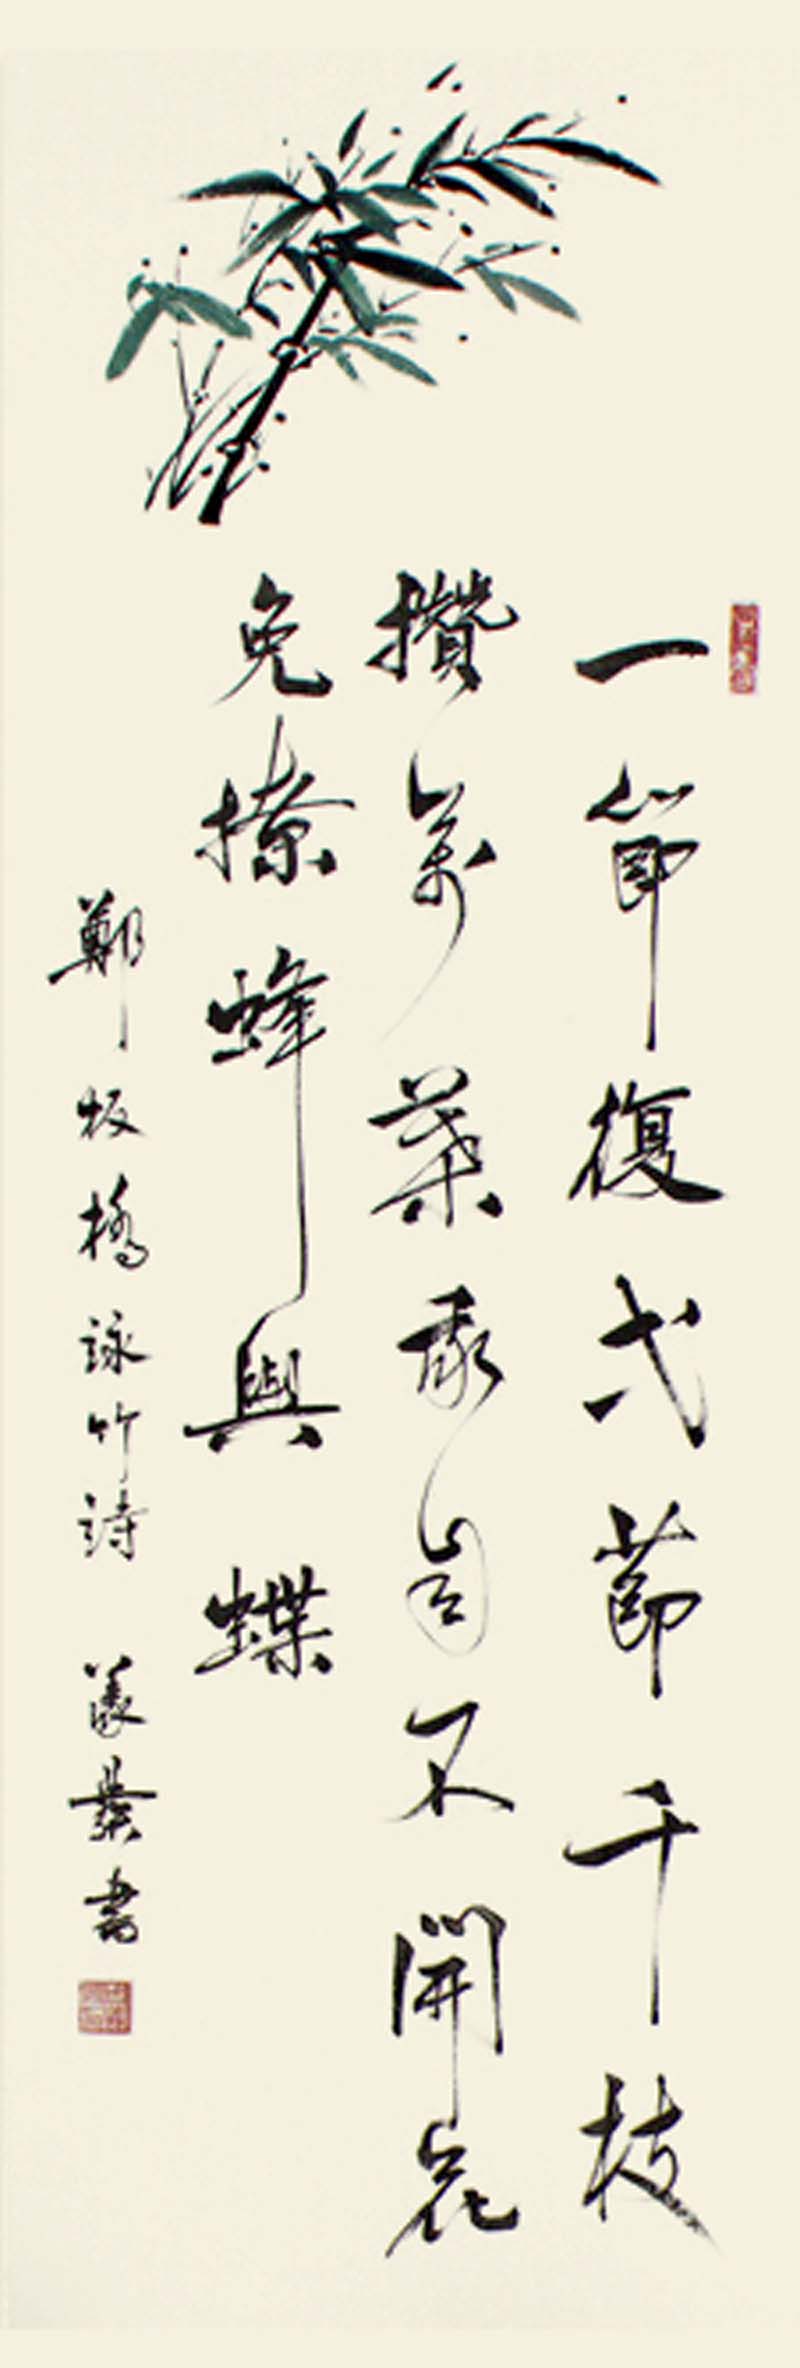 一節復弌節千枝
攢萬葉我自不開花
免撩蜂與蝶
鄭板橋詠竹詩 書